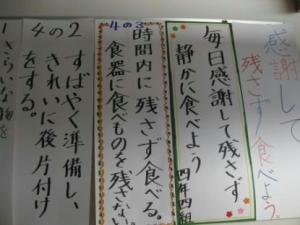 感謝して
残さず食べよう。
毎日感謝して残さず
静かに食べよう
四年四組
4の3
時間内に残さず食べる。
食器に食べものを残さない。
4の2
すばやく準備し、
きれいに後片付け
をする。
きらいな物を